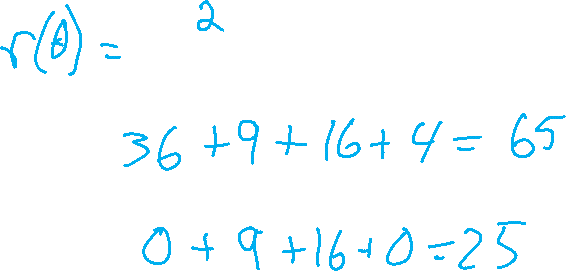 r(θ) = 2
36 + 9 + 16 + 4 = 65
0 + 9 + 16 + 0 = 25